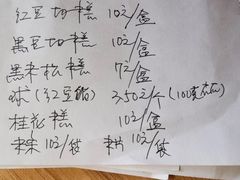 红豆切糕 10元/盒
黑豆切糕 10元/盒
黑米松糕 7元/盒
球(红豆馅) 3.50元/个(100克左右)
桂花糕 10元/盒
10元/袋 10元/袋